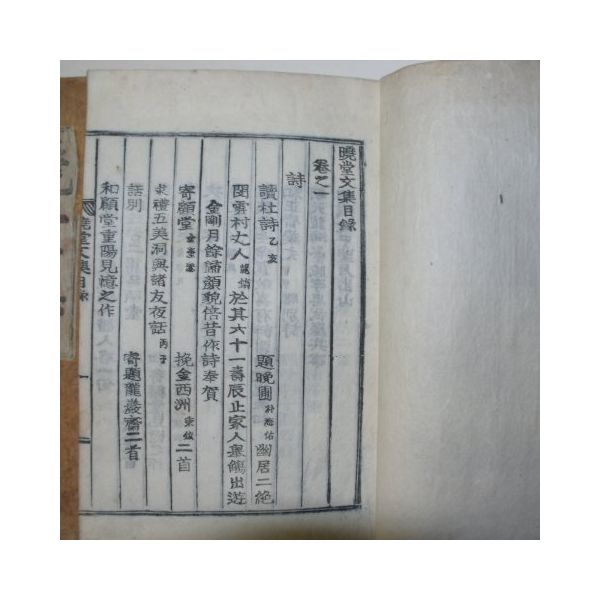 曉堂文集目錄
卷之一
詩
讀杜詩 乙亥 題晩圃 幽居二絶
閔雪村丈人 於其六十一壽辰止家人擧觴出遊
金剛月餘歸顔貌倍昔作詩奉賀
寄顧堂 挽金西洲 二首
求禮五美洞與諸友夜話 丙子
話別 寄題龍巖齋二首
和顧堂重陽見憶之作
曉堂文集目錄 一